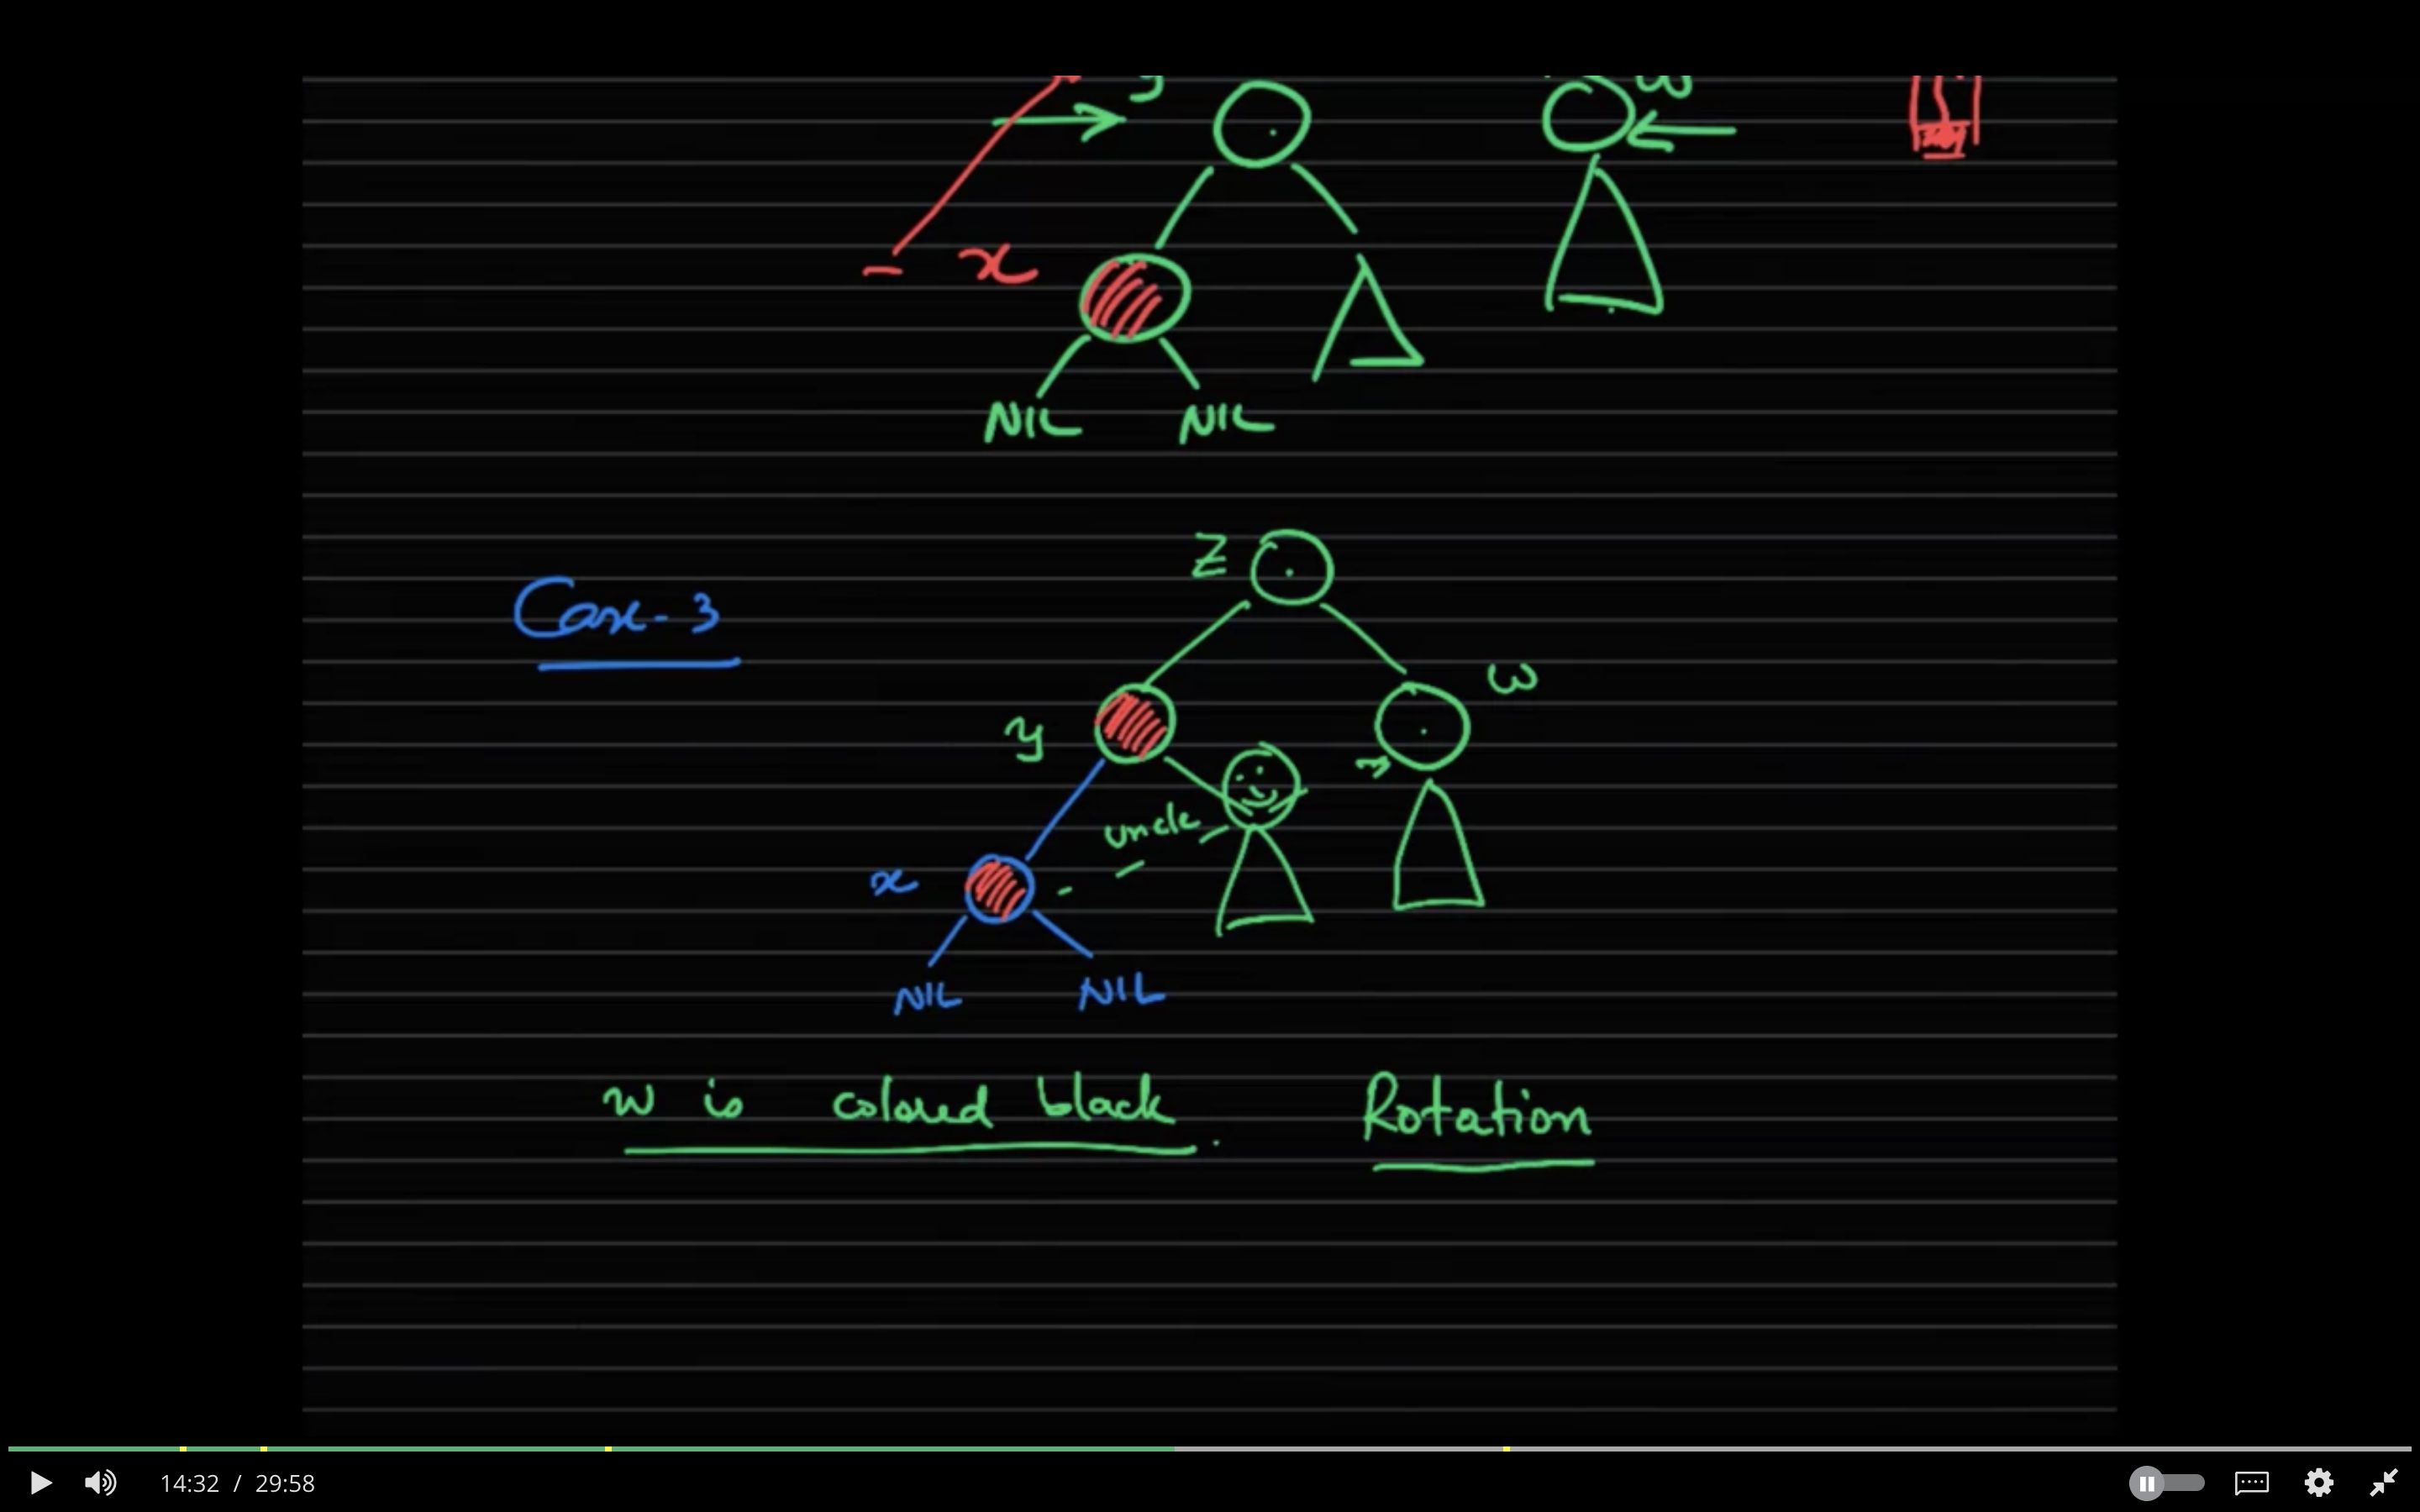 y
x
NIL NIL
Z
Case-3
ω
y
uncle
x
NIL NIL
w is colored black. Rotation
14:32 / 29:58